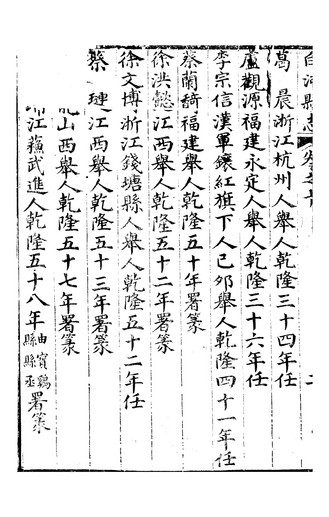 白河縣志
葛晨浙江杭州人舉人乾隆三十四年任
盧觀源福建永定人舉人乾隆三十六年任
李宗信漢軍鑲紅旗下人己卯舉人乾隆四十一年任
蔡蘭馪福建舉人乾隆五十年署篆
徐洪懿江西舉人乾隆五十二年署篆
徐文博浙江錢塘縣人舉人乾隆五十二年任
蔡璉江西舉人乾隆五十三年署篆
山西舉人乾隆五十七年署篆
江蘇武進人乾隆五十八年由寶鷄縣縣丞署篆